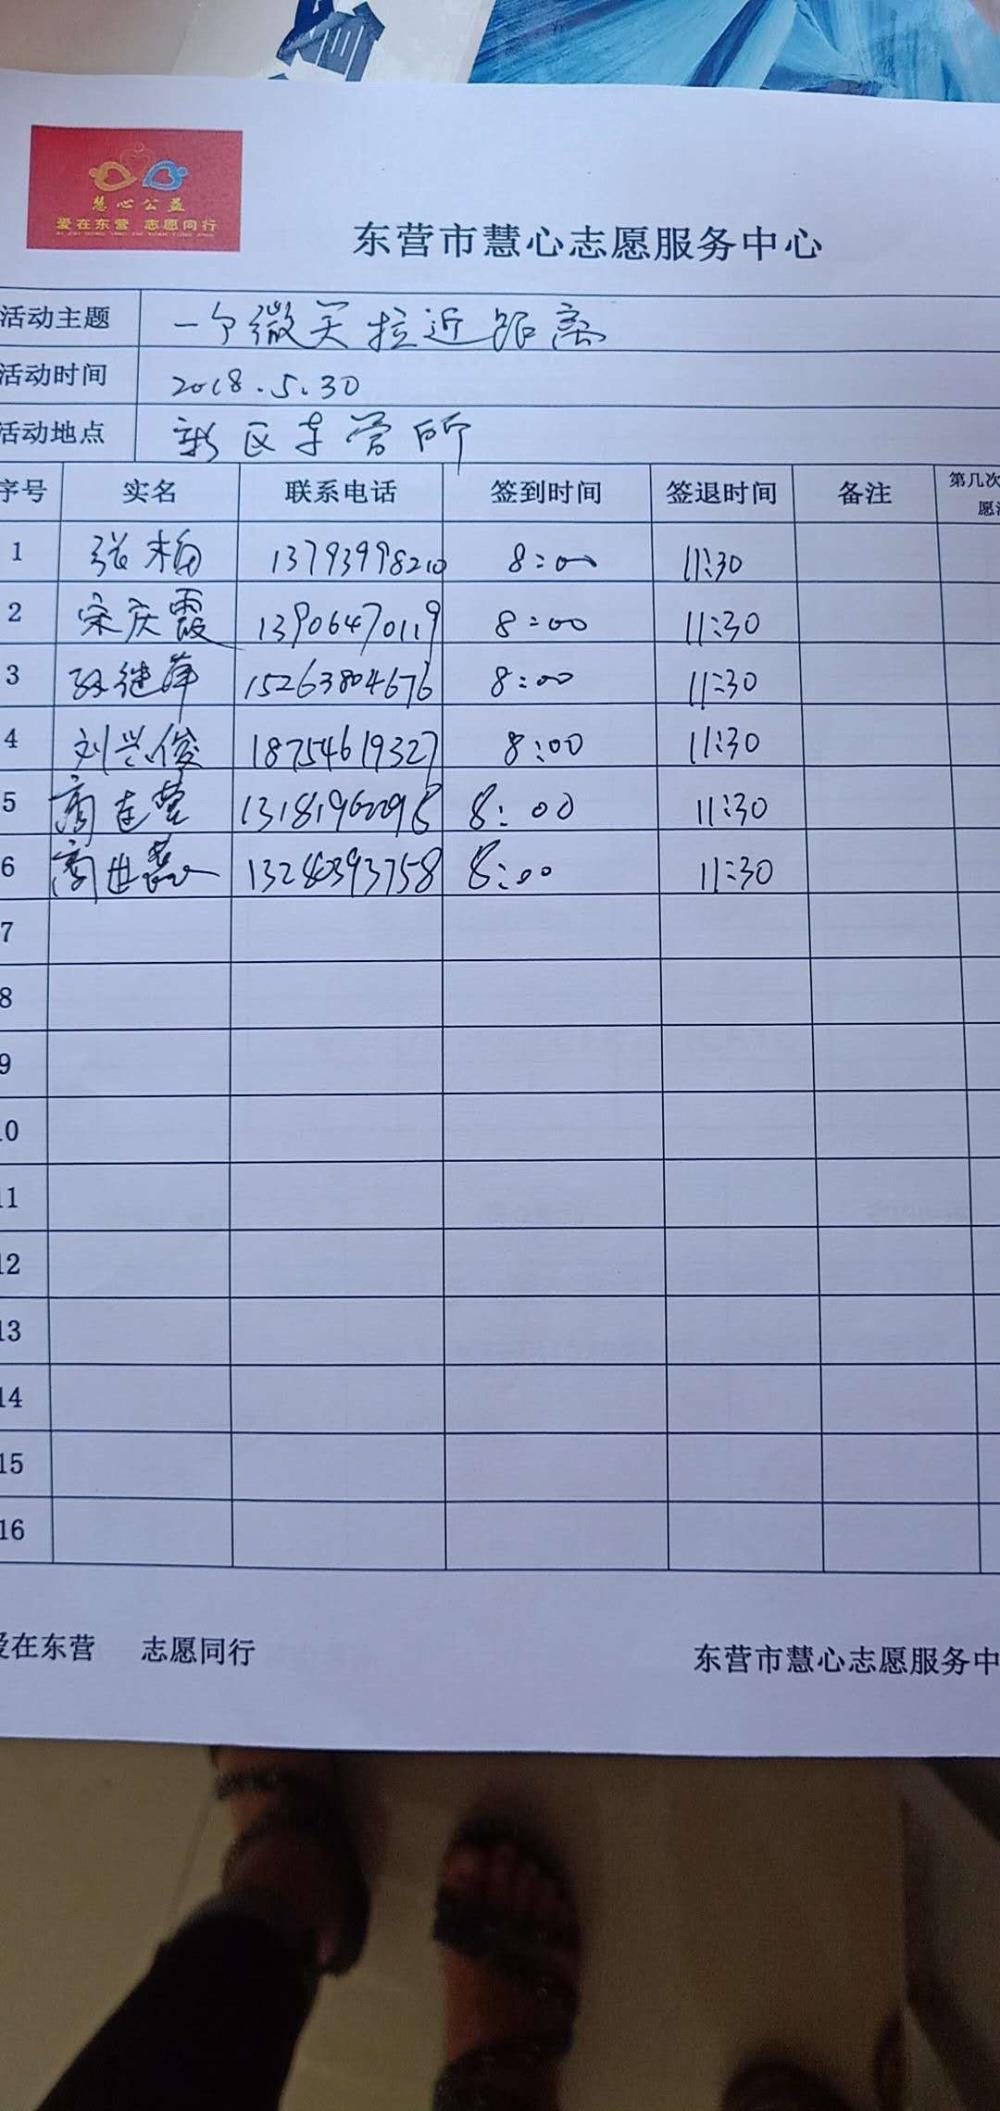 慧心公益
爱在东营 志愿同行
东营市慧心志愿服务中心
活动主题 一个微笑拉近距离
活动时间 2018.5.30
活动地点 新区车管所
序号 实名 联系电话 签到时间 签退时间 备注 第几次
愿
1 张柏 13793998210 8:00 11:30
2 宋庆霞 13906470119 8:00 11:30
3 孙继萍 15263804676 8:00 11:30
4 刘兴俊 18754619327 8:00 11:30
5 商连莹 8:00 11:30
6 商世慧 13280393758 8:00 11:30
7
8
9
10
11
12
13
14
15
16
爱在东营 志愿同行 东营市慧心志愿服务中